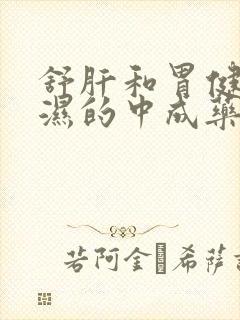 舒肝和胃健
濕的中成藥
若阿金·希薩